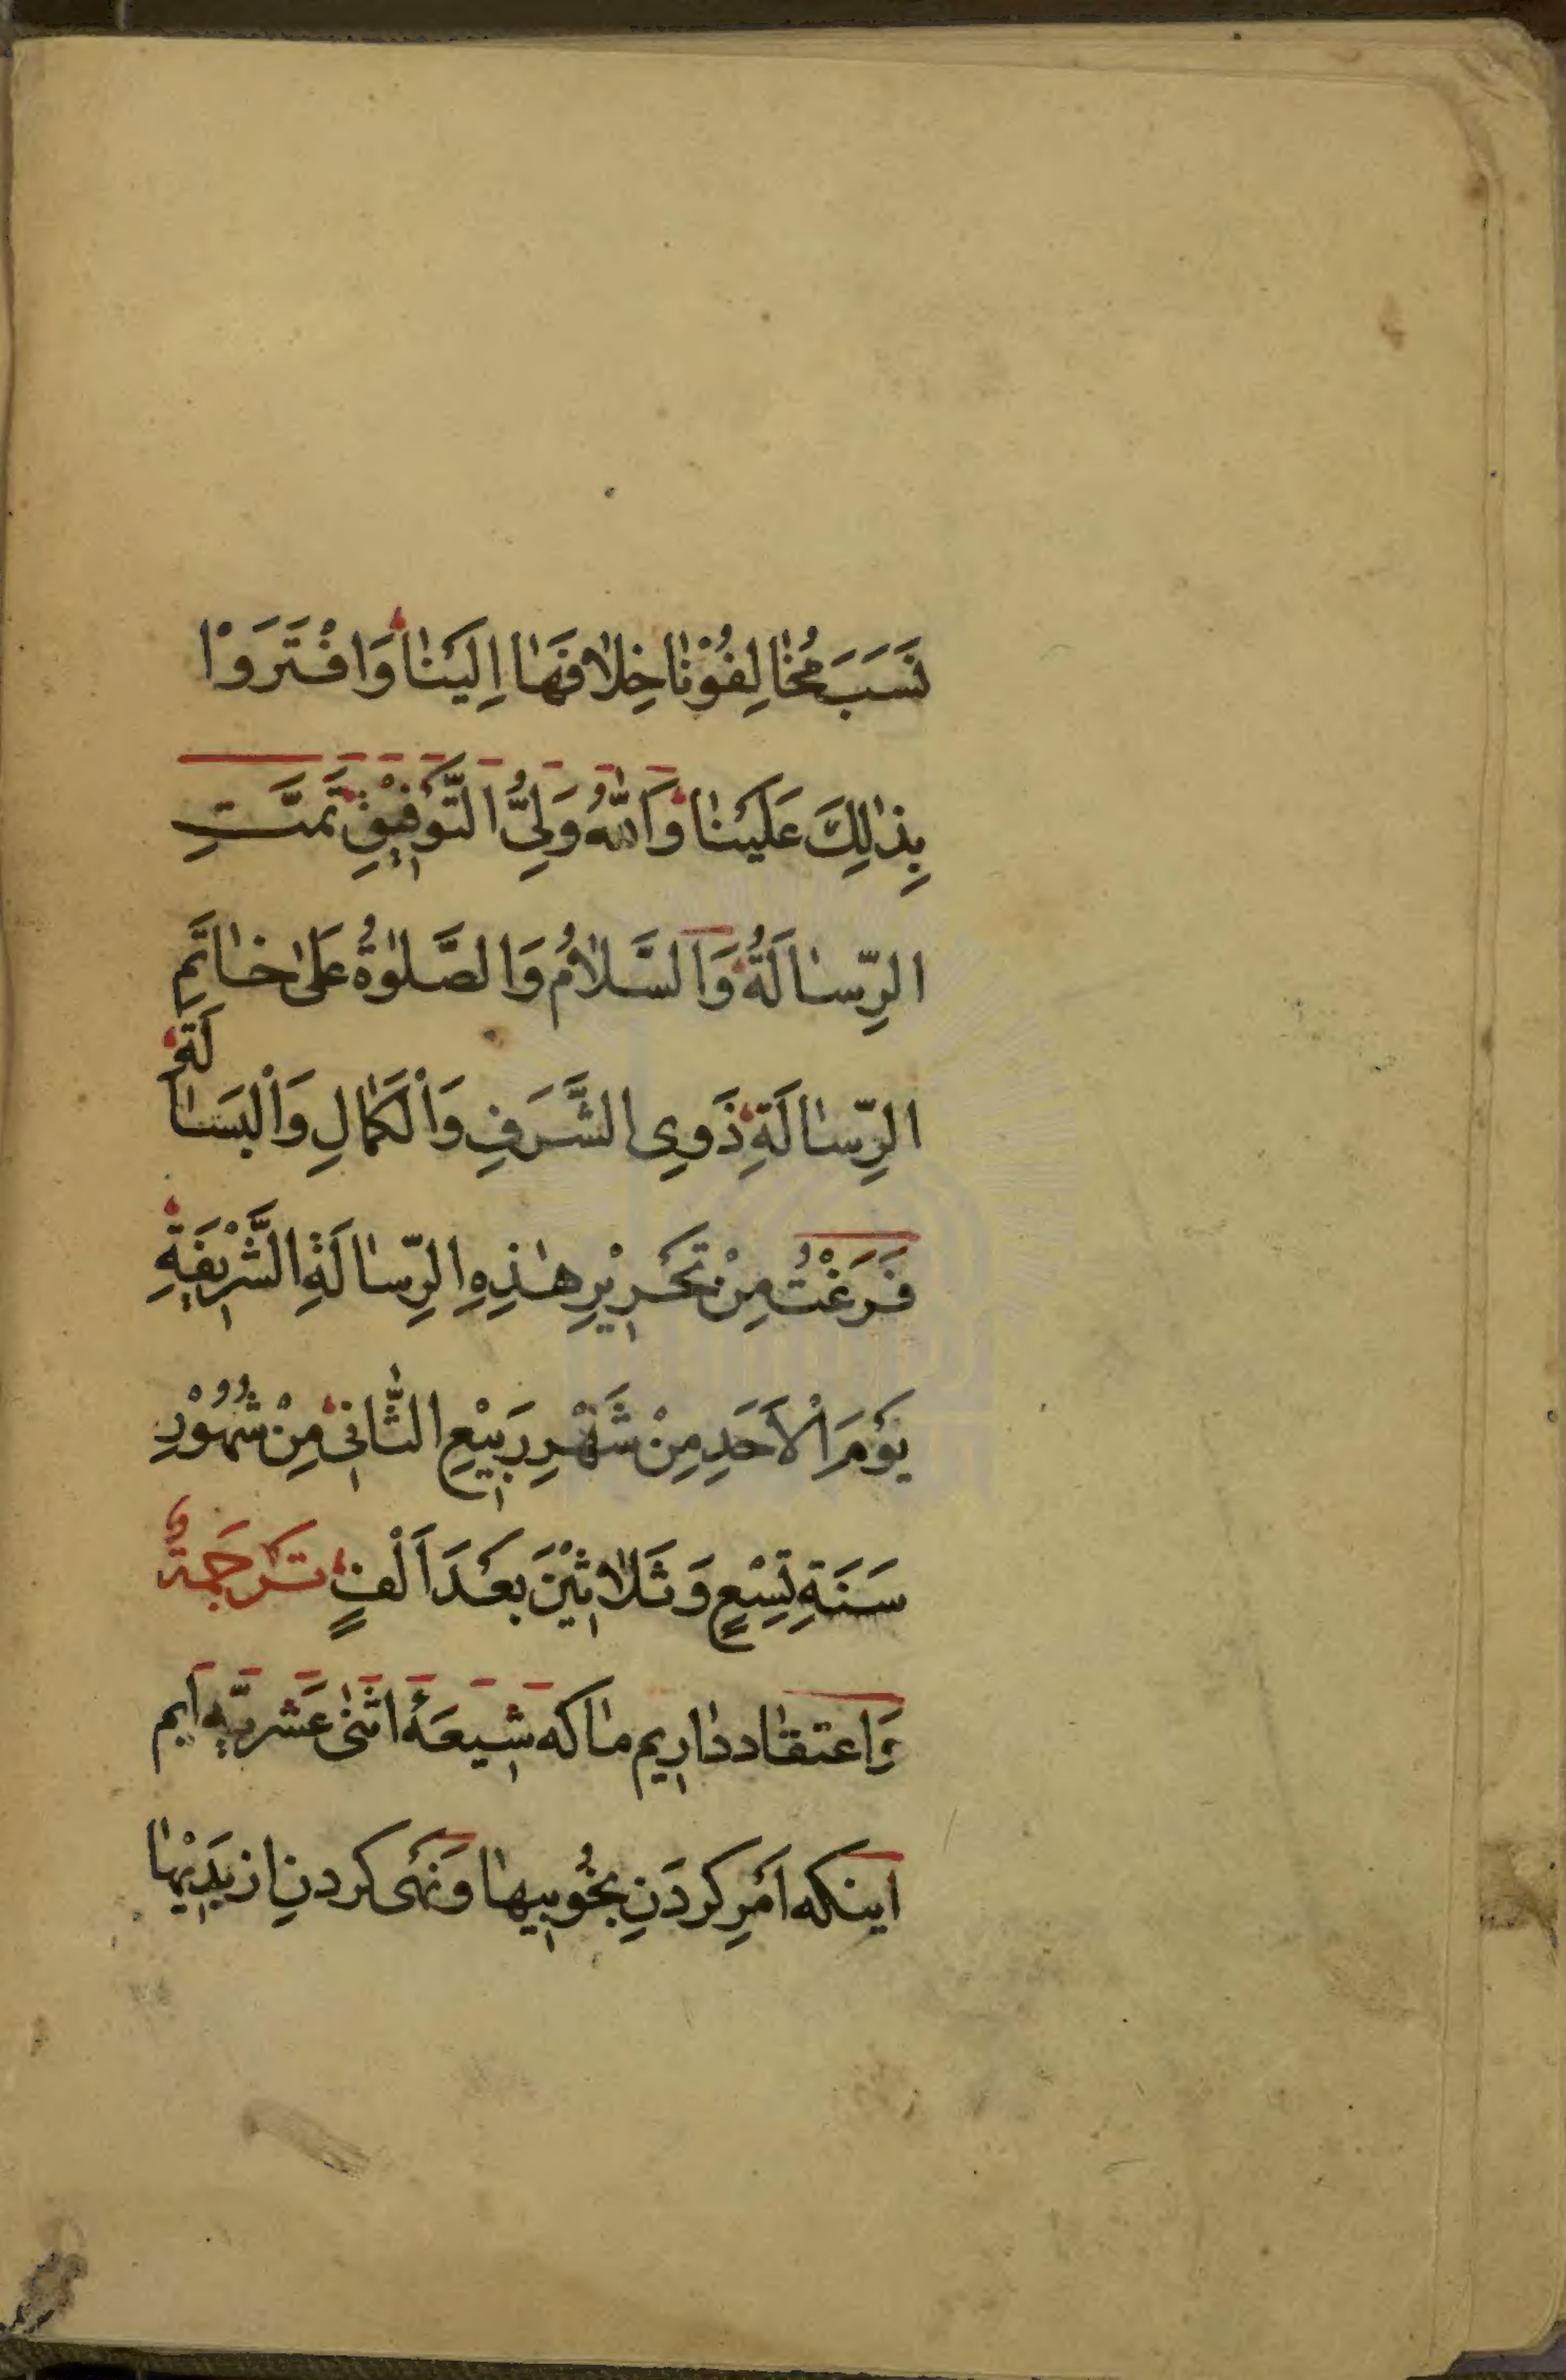 نَسَبَ مُخٰالِفُوْنٰا خِلٰافَهٰا اِلَيْنٰا وَافْتَرَوْا
بِذٰلِكَ عَلَيْنٰا وَاللّٰهُ وَلِىُّ التَّوْفِيْقِ تَمَّتِ
الرِّسٰالَةُ وَالسَّلٰامُ وَالصَّلٰوةُ عَلىٰ خٰاتَمِ
الرِّسٰالَةِ ذَوِى الشَّرَفِ وَالْكَمٰالِ وَالْبَسٰالَةِ
فَرَغْتُ مِنْ تَحْرِيْرِ هٰذِهِ الرِّسٰالَةِ الشَّرْيفَةِ
يَوْمَ الْاَحَدِ مِنْ شَهْرِ رَبِيْعِ الثّٰانِى مِنْ شُهُوْرِ
سَنَةِ تِسْعٍ وَثَلٰاثِيْنَ بَعْدَ اَلْفٍ تَرْجَمَةُ
وَاعتقٰاد دٰاريم مٰا كه شيعَهٔ اثنىٰ عَشَريّه ايم
اينكه اَمْرِ كردَنِ بخُوبيهٰا وَنَهْى كردنِ از بَديْهٰا